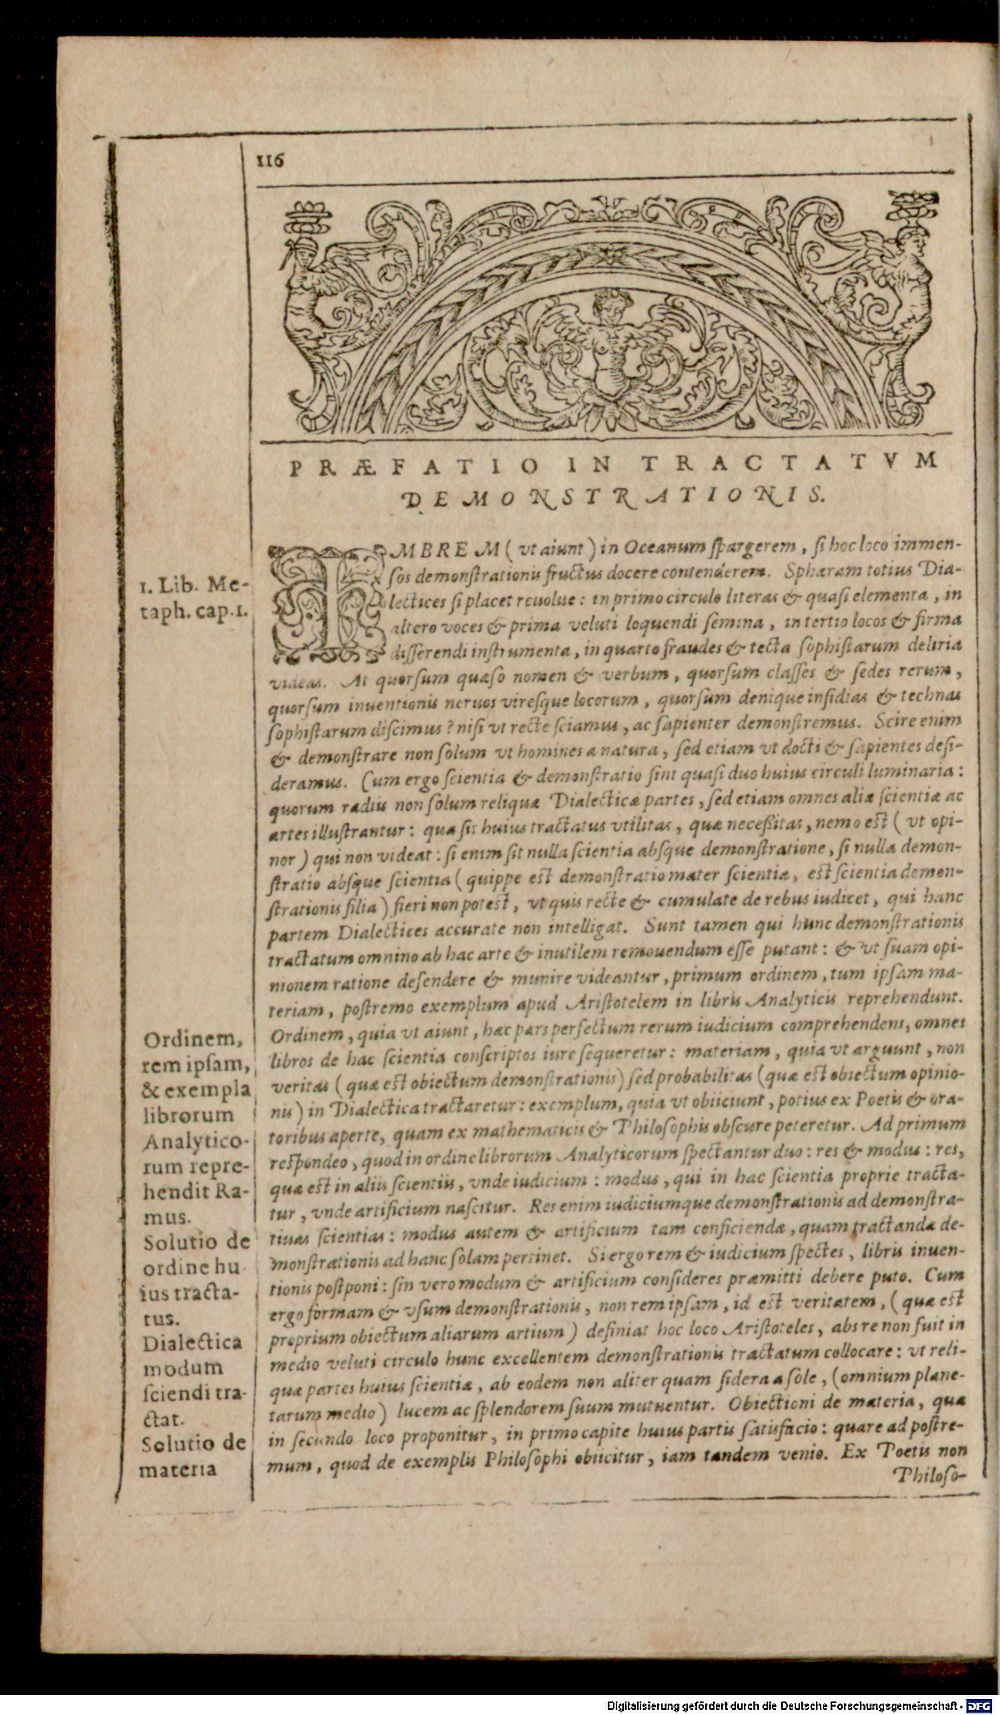 116
PRÆFATIO IN TRACTATVM
DEMONSTRATIONIS.
IMBREM (vt aiunt) in Oceanum ſpargerem, ſi hoc loco immen-
ſos demonſtrationis fructus docere contenderem. Sphæram totius Dia-
lectices ſi placet reuolue: in primo circulo literas & quaſi elementa, in
altero voces & prima veluti loquendi ſemina, in tertio locos & firma
diſſerendi inſtrumenta, in quarto fraudes & tecta ſophiſtarum deliria
videas. At quorſum quæſo nomen & verbum, quorſum claſſes & ſedes rerum,
quorſum inuentionis neruos vireſque locorum, quorſum denique inſidias & technas
ſophiſtarum diſcimus? niſi vt recte ſciamus, ac ſapienter demonſtremus. Scire enim
& demonſtrare non ſolum vt homines a natura, ſed etiam vt docti & ſapientes deſi-
deramus. Cum ergo ſcientia & demonſtratio ſint quaſi duo huius circuli luminaria:
quorum radiis non ſolum reliquæ Dialecticæ partes, ſed etiam omnes aliæ ſcientiæ ac
artes illuſtrantur: quæ ſit huius tractatus vtilitas, quæ neceßitas, nemo eſt (vt opi-
nor) qui non videat: ſi enim ſit nulla ſcientia abſque demonſtratione, ſi nulla demon-
ſtratio abſque ſcientia (quippe eſt demonſtratio mater ſcientiæ, eſt ſcientia demon-
ſtrationis filia) fieri non poteſt, vt quis recte & cumulate de rebus iudicet, qui hanc
partem Dialectices accurate non intelligat. Sunt tamen qui hunc demonſtrationis
tractatum omnino ab hac arte & inutilem remouendum eſſe putant: & vt ſuam opi-
nionem ratione defendere & munire videantur, primum ordinem, tum ipſam ma-
teriam, poſtremo exemplum apud Ariſtotelem in libris Analyticis reprehendunt.
Ordinem, quia vt aiunt, hæc pars perfectum rerum iudicium comprehendens, omnes
libros de hac ſcientia conſcriptos iure ſequeretur: materiam, quia vt arguunt, non
veritas (quæ eſt obiectum demonſtrationis) ſed probabilitas (quæ eſt obiectum opinio-
nis) in Dialectica tractaretur: exemplum, quia vt obiiciunt, potius ex Poetis & ora-
toribus aperte, quam ex mathematicis & Philoſophis obſcure peteretur. Ad primum
reſpondeo, quod in ordine librorum Analyticorum ſpectantur duo: res & modus: res,
quæ eſt in aliis ſcientiis, vnde iudicium: modus, qui in hac ſcientia proprie tracta-
tur, vnde artificium naſcitur. Res enim iudiciumque demonſtrationis ad demonſtra-
tiuas ſcientias: modus autem & artificium tam conficiendæ, quam tractandæ de-
monſtrationis ad hanc ſolam pertinet. Si ergo rem & iudicium ſpectes, libris inuen-
tionis poſtponi: ſin vero modum & artificium conſideres præmitti debere puto. Cum
ergo formam & vſum demonſtrationis, non rem ipſam, id eſt veritatem, (quæ eſt
proprium obiectum aliarum artium) definiat hoc loco Ariſtoteles, abs re non fuit in
medio veluti circulo hunc excellentem demonſtrationis tractatum collocare: vt reli-
quæ partes huius ſcientiæ, ab eodem non aliter quam ſidera a ſole, (omnium plane-
tarum medio) lucem ac ſplendorem ſuum mutuentur. Obiectioni de materia, quæ
in ſecundo loco proponitur, in primo capite huius partis ſatisfacio: quare ad poſtre-
mum, quod de exemplis Philoſophi obiicitur, iam tandem venio. Ex Poetis non
Philoſo-
1. Lib. Me-
taph. cap. 1.
Ordinem,
rem ipſam,
& exempla
librorum
Analytico-
rum repre-
hendit Ra-
mus.
Solutio de
ordine hu
ius tracta-
tus.
Dialectica
modum
ſciendi tra-
ctat.
Solutio de
materia
Digitalisierung gefördert durch die Deutsche Forschungsgemeinschaft - DFG